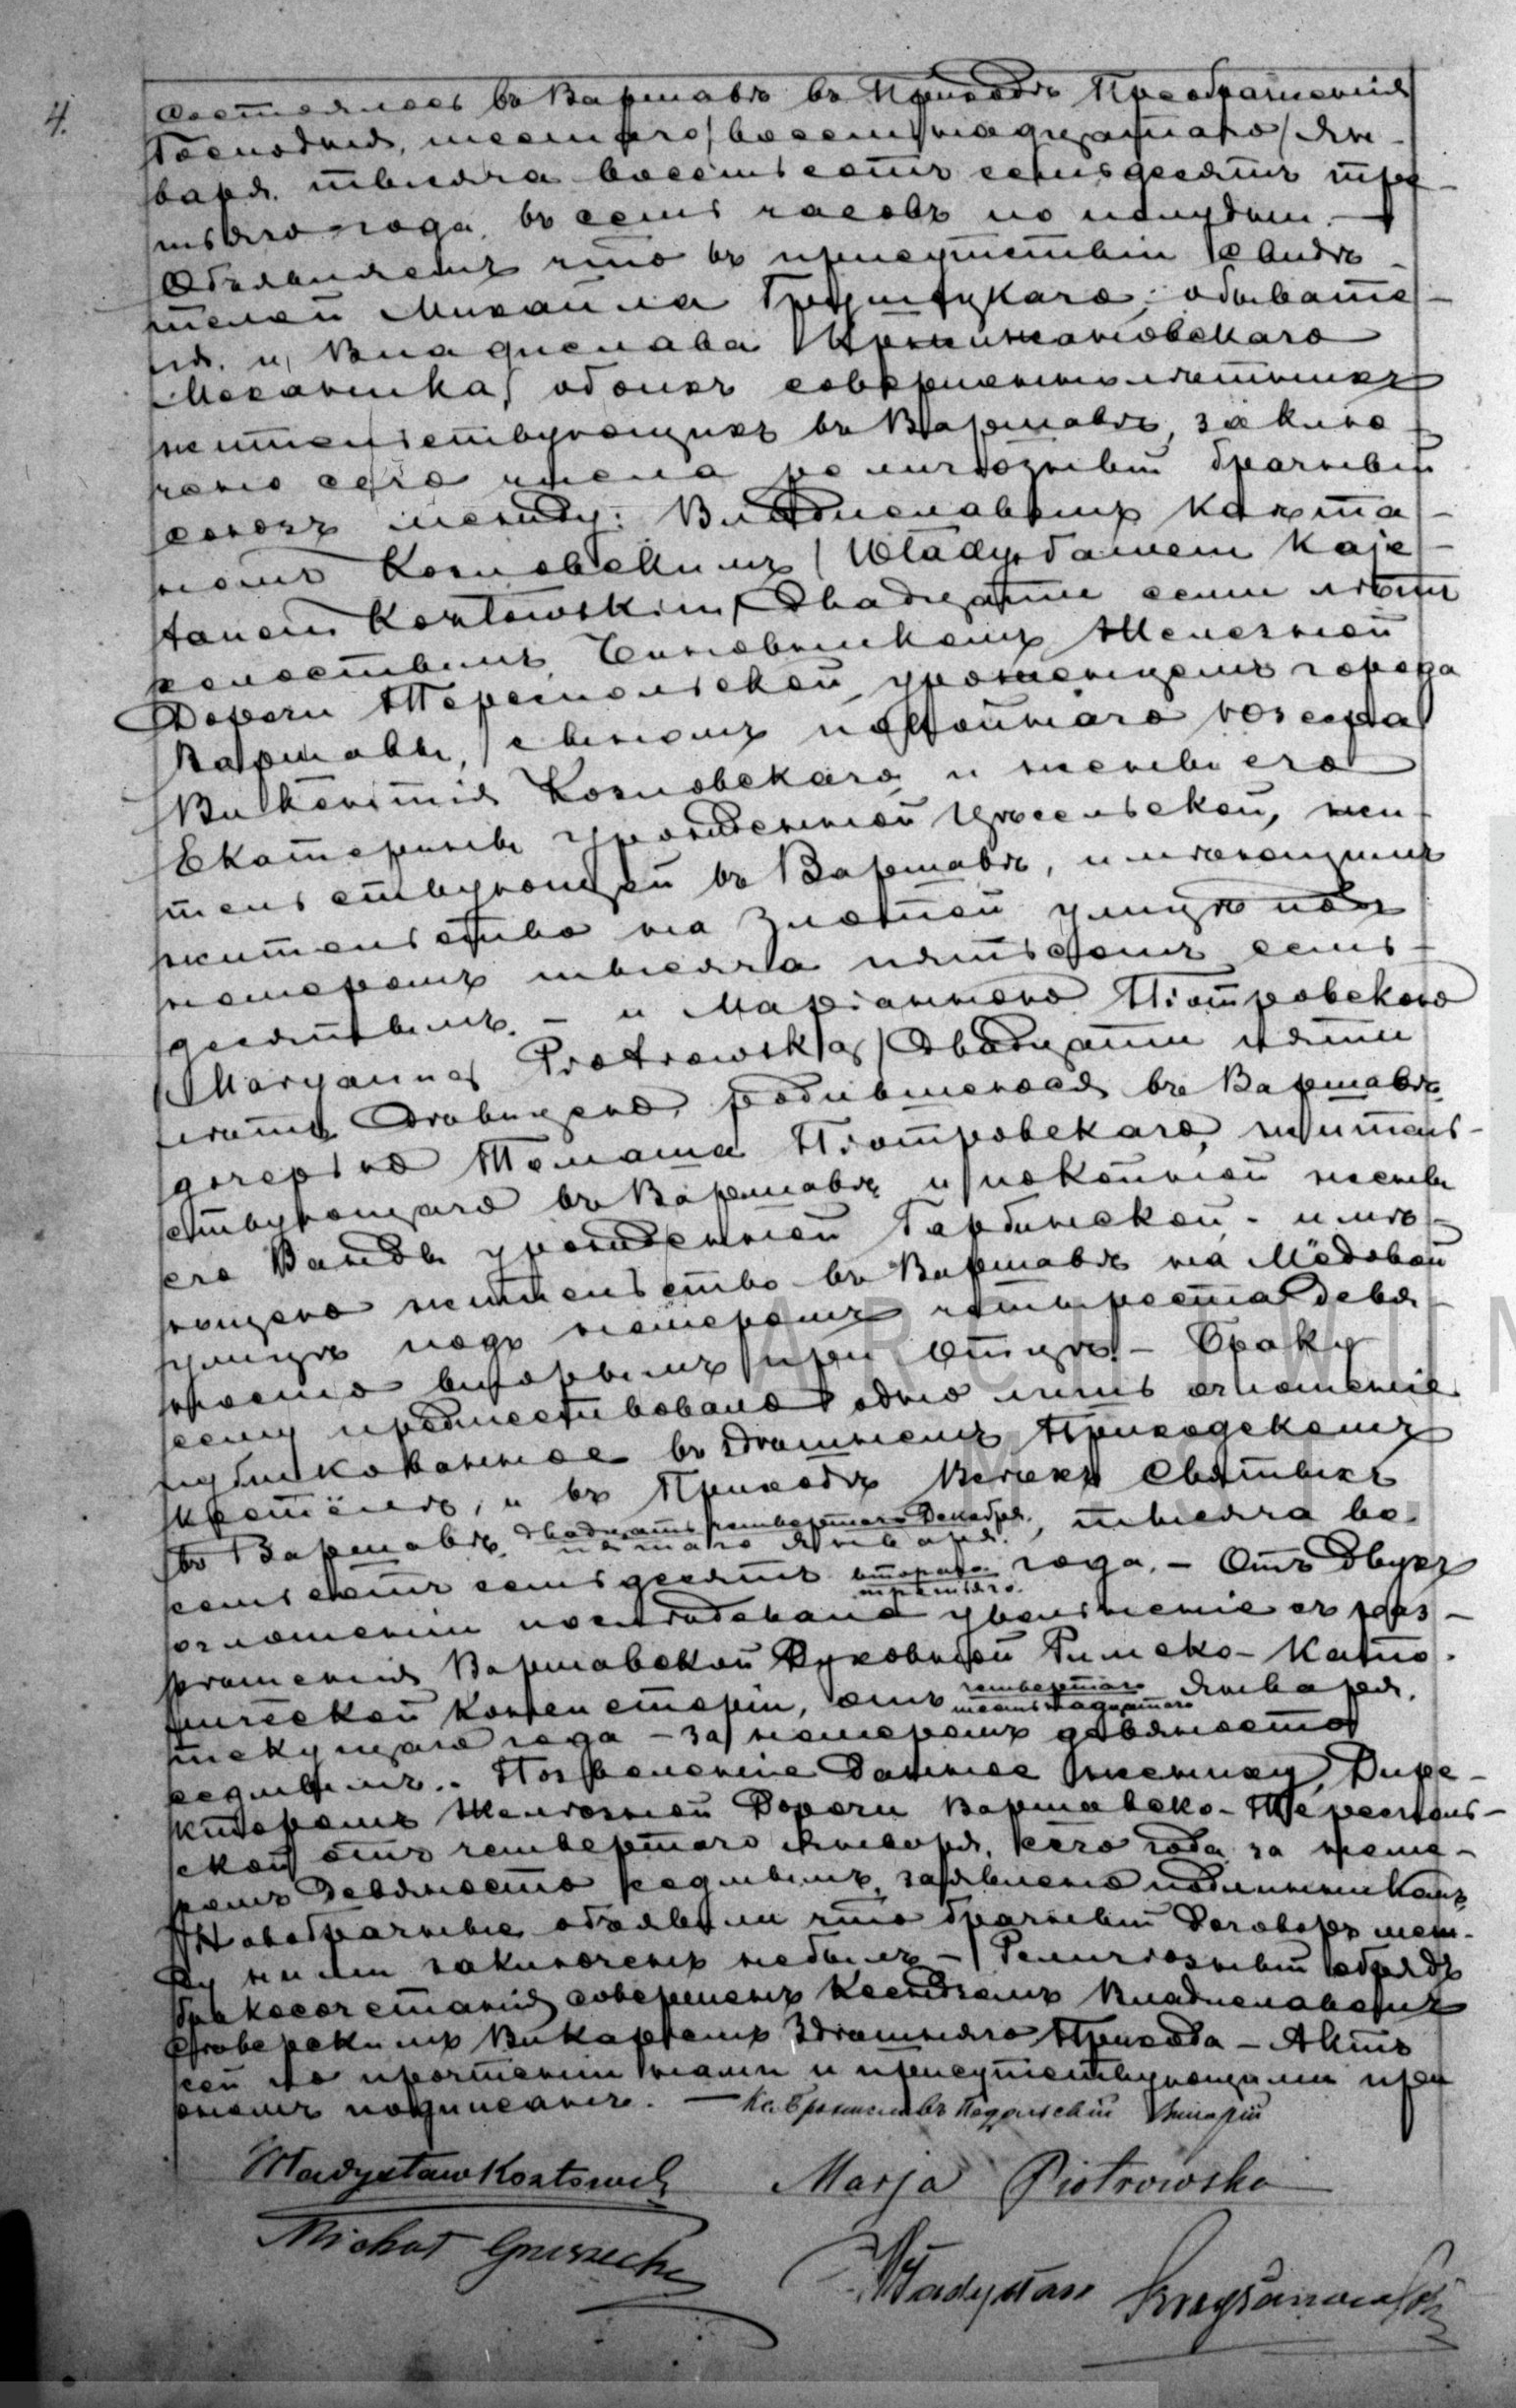 4.
Состоялось въ Варшавѣ въ Приходѣ Преображенія
Господня, шестаго /восемнадцатаго/ Ян-
варя, тысяча восемьсотъ семьдесятъ тре-
тьяго года, въ семь часовъ по полудни. —
Объявляемъ что въ присутствіи Свидѣ-
телей Михаила обывате-
ля, и Владислава Кржижановскаго
Механика, обоихъ совершеннолѣтнихъ
жительствующихъ въ Варшавѣ, заклю-
чено сего числа религіозный брачный
союзъ между: Владиславомъ Каэта-
номъ Козловскимъ / Władysławem Kaje-
tanem Kozłowskim / двадцати семи лѣтъ
холостымъ Чиновникомъ Железной
Дороги Тереспольской урожденцемъ города
Варшавы, сыномъ покойнаго Іосефа
Викентія Козловскаго и жены его
Екатерины урожденной жи-
тельствующей въ Варшавѣ, имѣющимъ
жительство на Злотой улицѣ подъ
номеромъ тысяча пятьсотъ семь-
десятымъ. — и Маріанною Піотровскою
/ Maryanną Piotrowską / двадцати пяти
лѣтъ Дѣвицею, родившеюся въ Варшавѣ
дочерью Томаша Піотровскаго, житель-
ствующаго въ Варшавѣ и покойной жены
его Ванды урожденной Гарбинской. — имѣ-
ющею жительство въ Варшавѣ на Мёдовой
улицѣ подъ номеромъ четыреста девя-
носто вторымъ при Отцѣ. — Браку
сему предшествовало одно лишь оглошеніе
публикованное въ здѣшнемъ Приходскомъ
Костёлѣ, и въ Приходѣ Всѣхъ Святыхъ
въ Варшавѣ, двадцать четвертаго Декабря, тысяча во-
пятаго Января.
семьсотъ семьдесятъ втораго года. — Отъ двухъ
третьяго.
оглошеніи послѣдовало увольненіе съ раз-
рѣшенія Варшавской Духовной Римско-Като-
лической Консисторіи, отъ четвертаго Января,
шестнадцатаго
текущаго года — за номеромъ девяносто
седмымъ. — Позволеніе данное жениху, Дире-
кторомъ Желѣзной Дороги Варшавско-Терестоль-
ской отъ четвертаго Января, сего года за номе-
ромъ девяносто седмымъ, заявлено подлинникомъ
Новобрачные объявили что брачный Договоръ меж-
ду ними заключенъ небылъ — Религіозный обрядъ
бракосочетанія совершенъ Ксендзомъ Владиславомъ
Сѣверскимъ Викаріемъ Здѣшняго Прихода — Актъ
сей по прочтеніи нами и присутствующими при
ономъ подписанъ. — Кс. Брониславъ Подольскій Викарій
Władysław Kozłowski Marja Piotrowska
Michał Gruszecki
Władysław Krzyżanowski